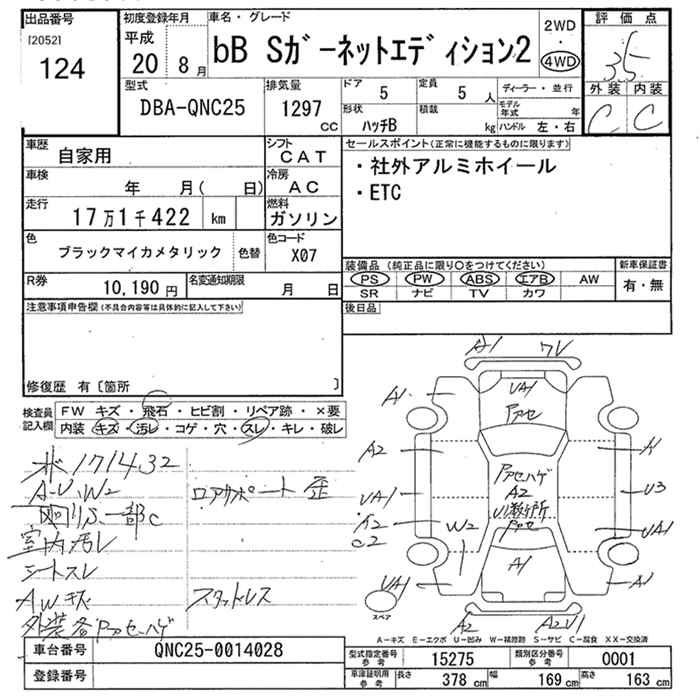 出品番号
[2052]
124
初度登録年月
平成
20年8月
車名・グレード
bB Sガーネットエディション2
2WD
・
4WD
評価点
3.5
外装 内装
C C
型式
DBA-QNC25
排気量
1297
cc
ドア
5
定員
5 人
形状
ハッチB
積載
kg
ディーラー・並行
モデル年式 年
ハンドル 左・右
車歴
自家用
シフト
CAT
車検
年 月( 日)
冷房
AC
走行
17万1千422 km
燃料
ガソリン
色
ブラックマイカメタリック
色替
色コード
X07
R券
10,190 円
名変通知期限
月 日
セールスポイント(正常に機能するものに限ります)
・社外アルミホイール
・ETC
装備品 (純正品に限り○をつけてください)
PS PW ABS エアB AW
SR ナビ TV カワ
新車保証書
有・無
後日品
注意事項申告欄(不具合内容等は具体的に記入して下さい)
修復歴 有〔箇所 〕
検査員記入欄
FW キズ・飛石・ヒビ割・リペア跡・×要
内装 キズ・汚レ・コゲ・穴・スレ・キレ・破レ
171432
A-U、W2
下回りS、一部C
室内汚レ
シートスレ
AWキズ
外装各所アセハゲ
ロアサポート歪
スタッドレス
A1
A1
UA1
アセ
A2
UA1
U3
アセハゲ
A2
U1数ヶ所
アセ
X2
C2
W2
UA1
A1
UA1
A1
A2
A2U1
スペア
A-キズ E-エクボ U-凹み W-補修跡 S-サビ C-腐食 XX-交換済
車台番号
QNC25-0014028
登録番号
型式指定番号
参考
15275
類別区分番号
参考
0001
車庫証明用
参考
長さ
378 cm
幅
169 cm
高さ
163 cm